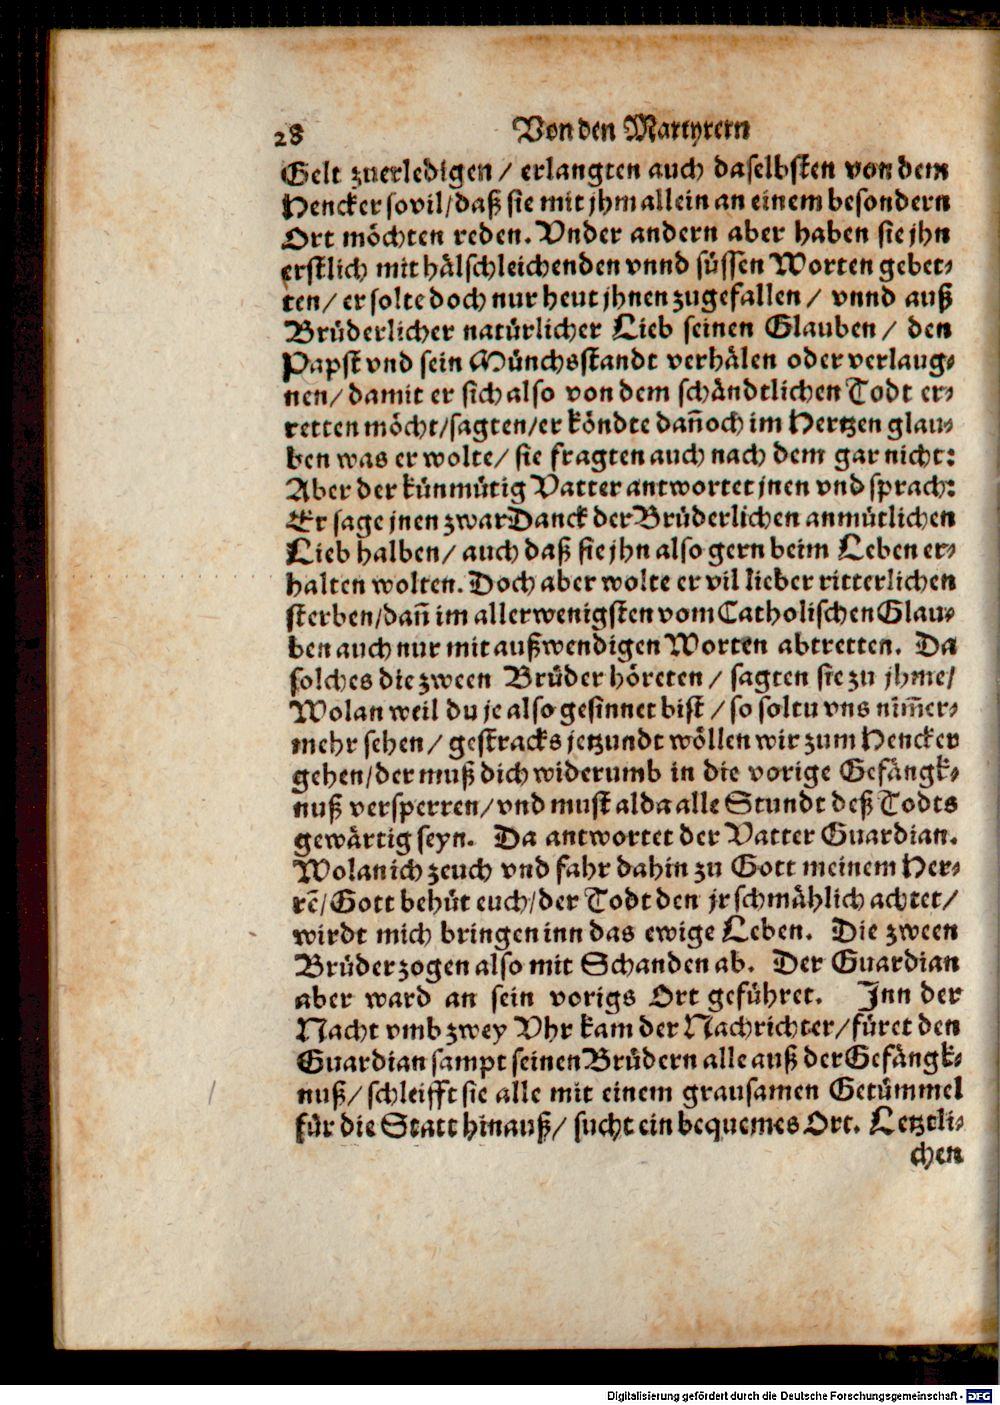 28 Von den Martyrern
Gelt zuerledigen / erlangten auch daselbsten von dem
Hencker sovil / daß sie mit jhm allein an einem besondern
Ort möchten reden. Vnder andern aber haben sie jhn
erstlich mit hälschleichenden vnnd süssen Worten gebet-
ten / er solte doch nur heut jhnen zugefallen / vnnd auß
Brüderlicher natürlicher Lieb seinen Glauben / den
Papst vnd sein Münchsstandt verhälen oder verlaug-
nen / damit er sich also von dem schändtlichen Todt er-
retten möcht / sagten / er köndte dañoch im Hertzen glau-
ben was er wolte / sie fragten auch nach dem gar nicht:
Aber der künmütig Vatter antwortet jnen vnd sprach:
Er sage jnen zwar Danck der Brüderlichen anmütlichen
Lieb halben / auch daß sie jhn also gern beim Leben er-
halten wolten. Doch aber wolte er vil lieber ritterlichen
sterben / dañ im allerwenigsten vom Catholischen Glau-
ben auch nur mit außwendigen Worten abtretten. Da
solches die zween Brüder höreten / sagten sie zu jhme /
Wolan weil du je also gesinnet bist / so soltu vns nim̃er-
mehr sehen / gestracks jetzundt wöllen wir zum Hencker
gehen / der muß dich widerumb in die vorige Gefängk-
nuß versperren / vnd must alda alle Stundt deß Todts
gewärtig seyn. Da antwortet der Vatter Guardian.
Wolan ich zeuch vnd fahr dahin zu Gott meinem Her-
rẽ / Gott behüt euch / der Todt den jr schmählich achtet /
wirdt mich bringen inn das ewige Leben. Die zween
Brüder zogen also mit Schanden ab. Der Guardian
aber ward an sein vorigs Ort geführet. Inn der
Nacht vmb zwey Vhr kam der Nachrichter / füret den
Guardian sampt seinen Brüdern alle auß der Gefängk-
nuß / schleifft sie alle mit einem grausamen Getümmel
für die Statt hinauß / sucht ein bequemes Ort. Letztli-
chen
Digitalisierung gefördert durch die Deutsche Forschungsgemeinschaft - DFG